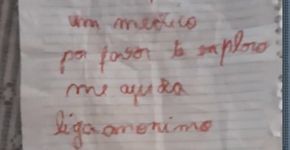 um medico
por favor te imploro
me ajuda
liga anonimo